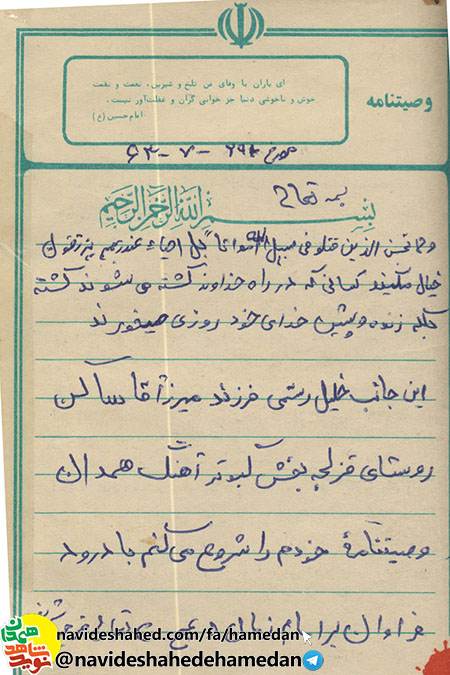 وصیتنامه
ای یاران با وفای من تلخ و شیرین، نعمت و نقمت
خوش و ناخوشی دنیا جز خوابی گران و غفلت‌آور نیست.
امام حسین (ع)
مورخ ۲۹-۷-۶۳
بسمه تعالی
بسم الله الرحمن الرحیم
ولا تحسبن الذین قتلو فی سبیل الله امواتا بل احیاء عند ربهم یرزقون
خیال مکنید کسانی که در راه خداوند کشته می شوند کشته
بلکه زنده و پیش خدای خود روزی میخورند
این جانب خلیل رستمی فرزند میرزآقا ساکن
روستای قزلجه بخش کبوتر آهنگ همدان
وصیتنامهٔ خودم را شروع می کنم با درود
فراوان بر امام زمان
navideshahed.com/fa/hamedan
@navideshahedehamedan
نوید شاهد همدان